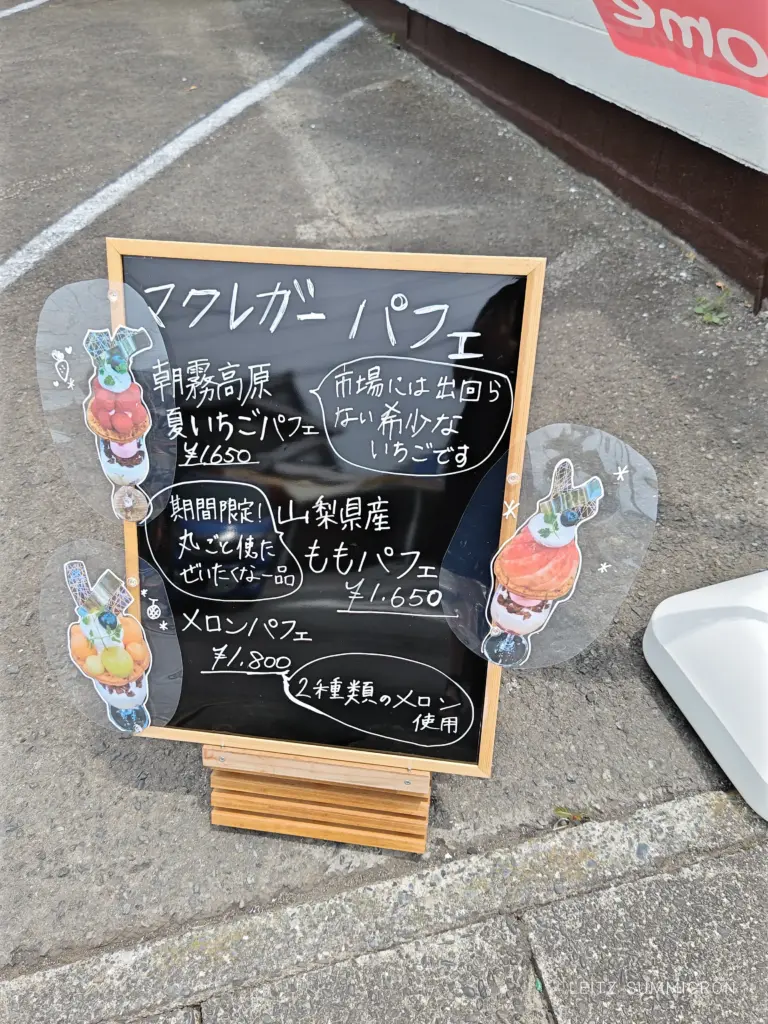 ome
マクレガー パフェ
朝霧高原
夏いちごパフェ
¥1650
市場には出回ら
ない希少な
いちごです
期間限定!
丸ごと使た
ぜいたくな一品
山梨県産
ももパフェ
¥1.650
メロンパフェ
¥1.800
2種類のメロン
使用
LEITZ SUMMICRON